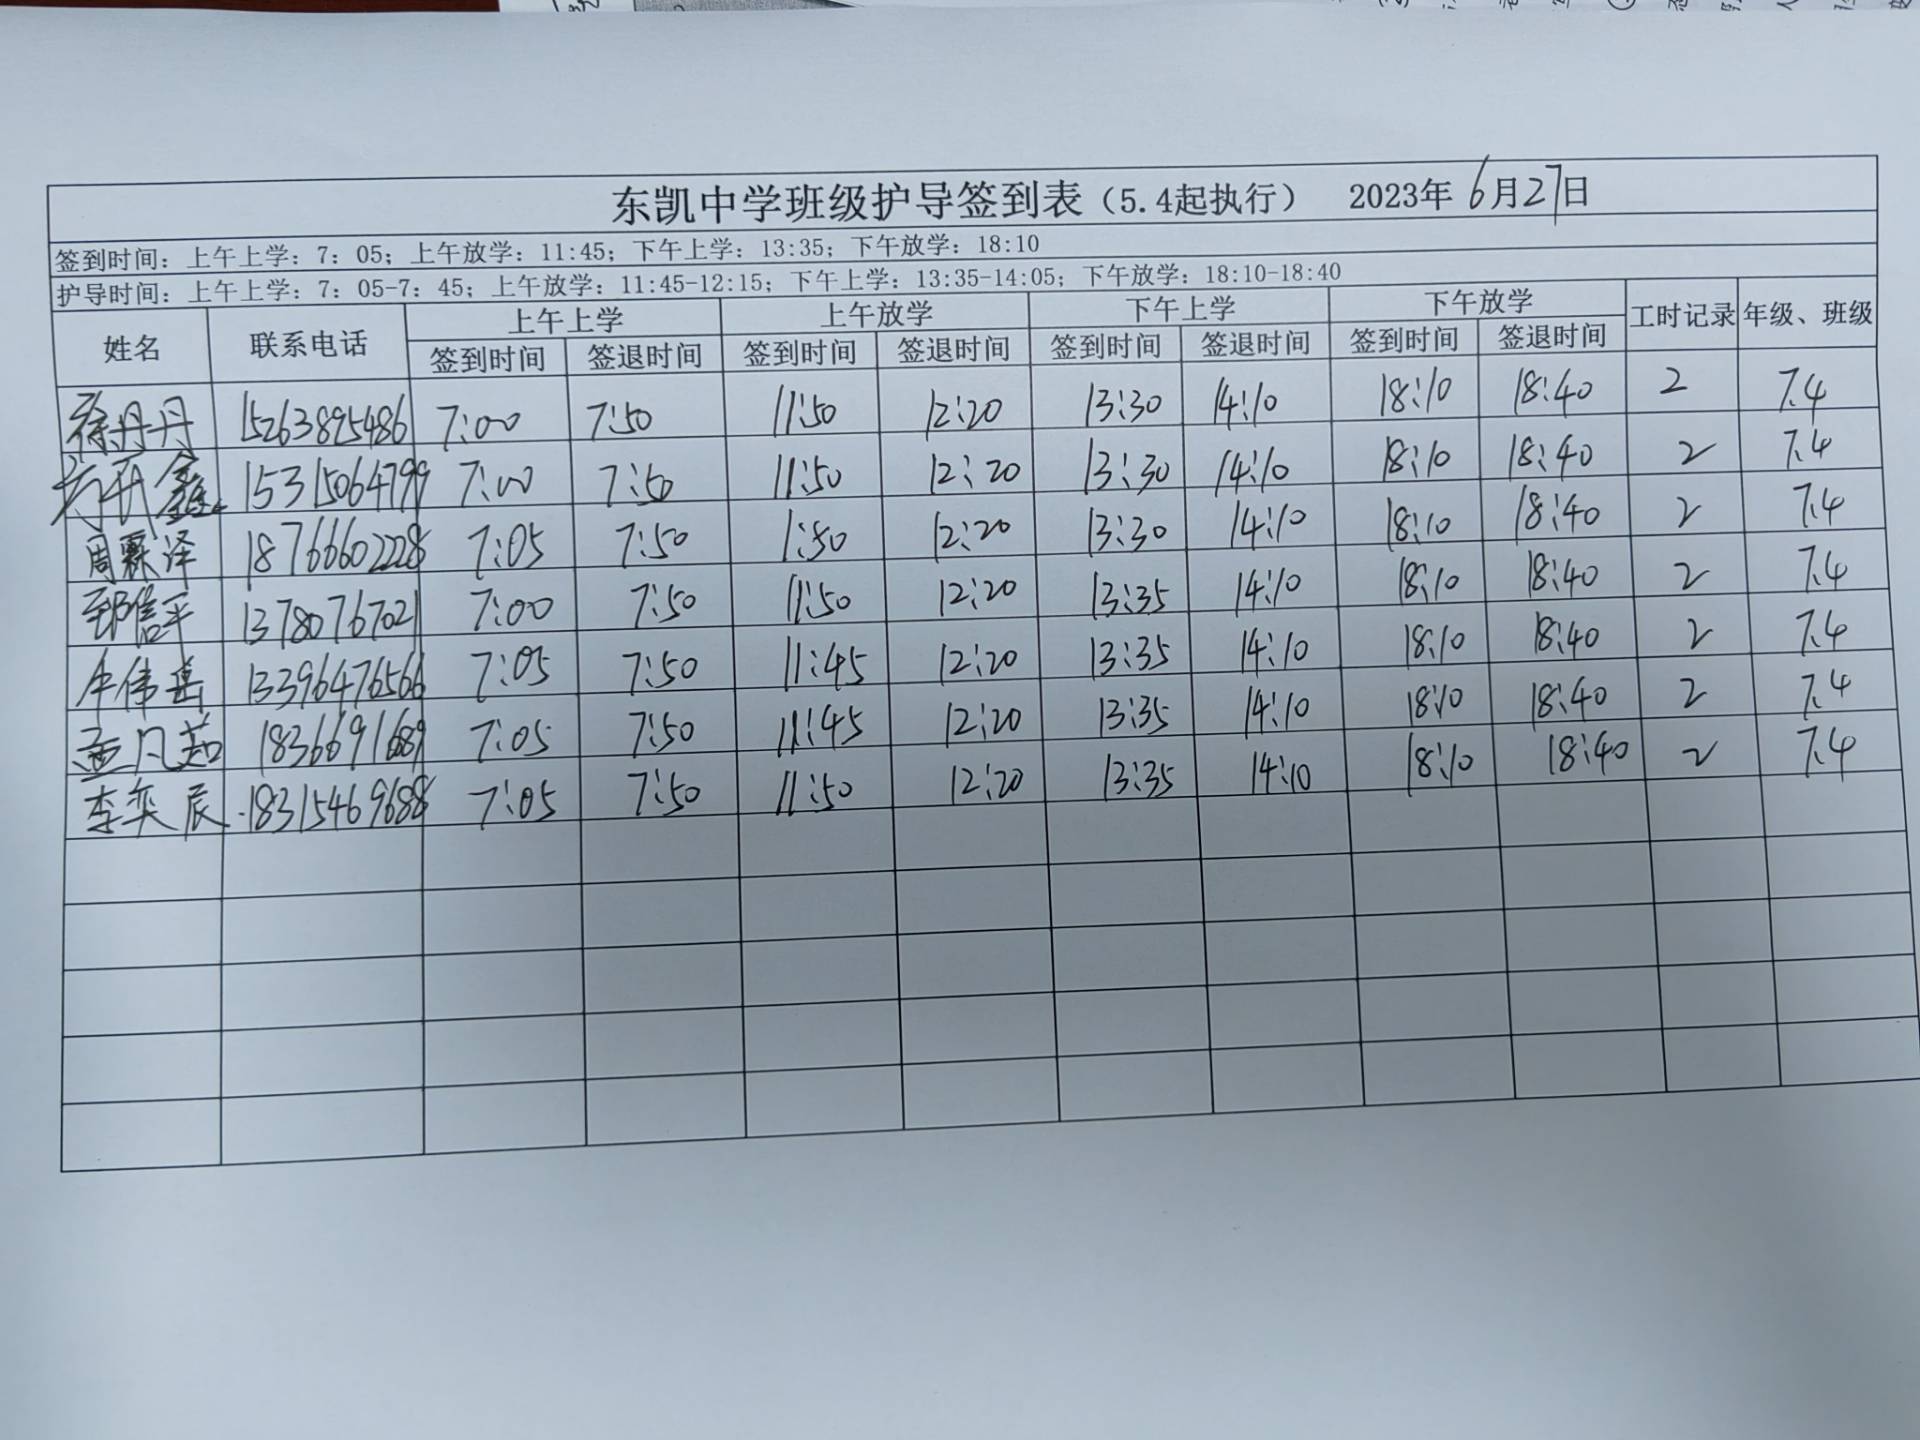 东凯中学班级护导签到表（5.4起执行） 2023年6月27日
签到时间：上午上学：7：05；上午放学：11:45；下午上学：13:35；下午放学：18:10
护导时间：上午上学：7：05-7：45；上午放学：11:45-12:15；下午上学：13:35-14:05；下午放学：18:10-18:40
姓名 联系电话 上午上学 上午放学 下午上学 下午放学 工时记录 年级、班级
签到时间 签退时间 签到时间 签退时间 签到时间 签退时间 签到时间 签退时间
徐丹丹 15263895486 7:00 7:50 11:50 12:20 13:30 14:10 18:10 18:40 2 7.4
15315064799 7:00 7:50 11:50 12:20 13:30 14:10 18:10 18:40 2 7.4
周霖泽 18766602228 7:05 7:50 1:50 12:20 13:30 14:10 18:10 18:40 2 7.4
郅信平 13780767021 7:00 7:50 11:50 12:20 13:35 14:10 18:10 18:40 2 7.4
13396476566 7:05 7:50 11:45 12:20 13:35 14:10 18:10 18:40 2 7.4
孟凡茹 18366691689 7:05 7:50 11:45 12:20 13:35 14:10 18:10 18:40 2 7.4
李奕辰 18315469688 7:05 7:50 11:50 12:20 13:35 14:10 18:10 18:40 2 7.4